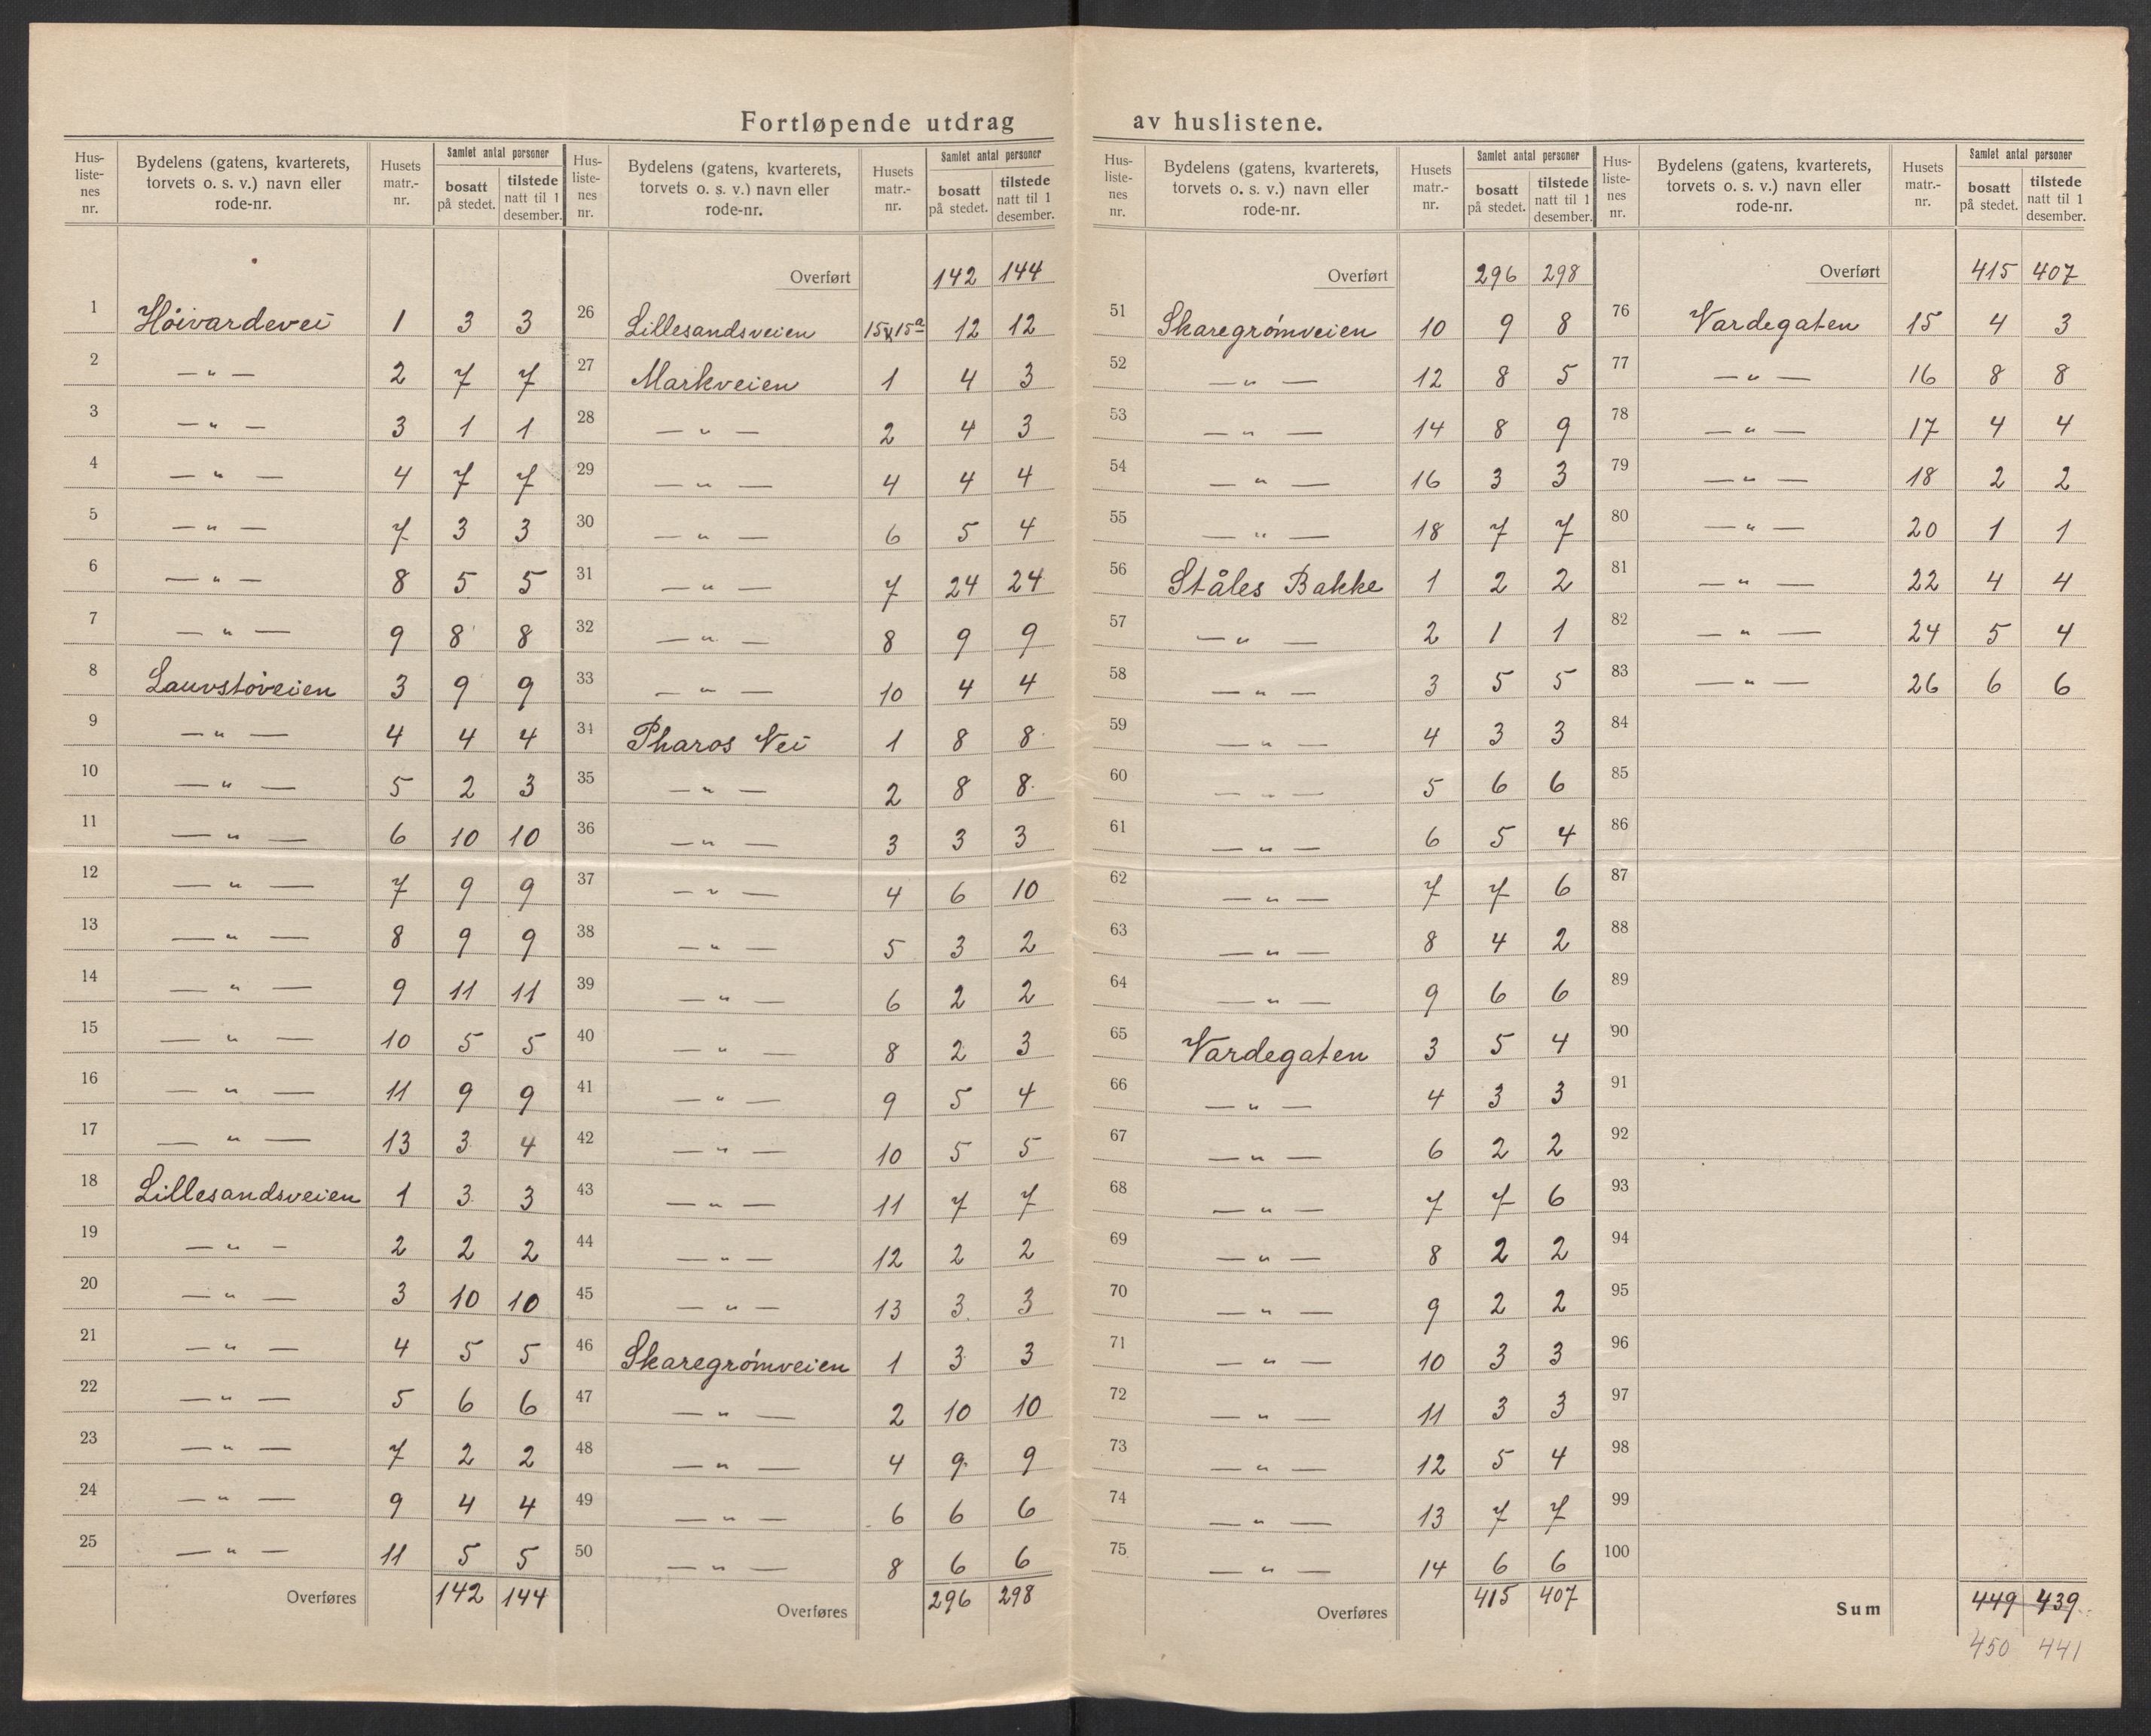 Fortløpende utdrag av huslistene.
Hus-listenes nr. | Bydelens (gatens, kvarterets, torvets o. s. v.) navn eller rode-nr. | Husets matr.-nr. | Samlet antal personer: bosatt på stedet. | tilstede natt til 1 desember.
1 Høivardevei 1 3 3
2 — " — 2 7 7
3 — " — 3 1 1
4 — " — 4 7 7
5 — " — 7 3 3
6 — " — 8 5 5
7 — " — 9 8 8
8 Lauvstøveien 3 9 9
9 — " — 4 4 4
10 — " — 5 2 3
11 — " — 6 10 10
12 — " — 7 9 9
13 — " — 8 9 9
14 — " — 9 11 11
15 — " — 10 5 5
16 — " — 11 9 9
17 — " — 13 3 4
18 Lillesandsveien 1 3 3
19 — " — 2 2 2
20 — " — 3 10 10
21 — " — 4 5 5
22 — " — 5 6 6
23 — " — 7 2 2
24 — " — 9 4 4
25 — " — 11 5 5
Overføres 142 144
Hus-listenes nr. | Bydelens (gatens, kvarterets, torvets o. s. v.) navn eller rode-nr. | Husets matr.-nr. | Samlet antal personer: bosatt på stedet. | tilstede natt til 1 desember.
Overført 142 144
26 Lillesandsveien 15 & 15a 12 12
27 Markveien 1 4 3
28 — " — 2 4 3
29 — " — 4 4 4
30 — " — 6 5 4
31 — " — 7 24 24
32 — " — 8 9 9
33 — " — 10 4 4
34 Pharos Vei 1 8 8
35 — " — 2 8 8
36 — " — 3 3 3
37 — " — 4 6 10
38 — " — 5 3 2
39 — " — 6 2 2
40 — " — 8 2 3
41 — " — 9 5 4
42 — " — 10 5 5
43 — " — 11 7 7
44 — " — 12 2 2
45 — " — 13 3 3
46 Skaregrømveien 1 3 3
47 — " — 2 10 10
48 — " — 4 9 9
49 — " — 6 6 6
50 — " — 8 6 6
Overføres 296 298
Hus-listenes nr. | Bydelens (gatens, kvarterets, torvets o. s. v.) navn eller rode-nr. | Husets matr.-nr. | Samlet antal personer: bosatt på stedet. | tilstede natt til 1 desember.
Overført 296 298
51 Skaregrømveien 10 9 8
52 — " — 12 8 5
53 — " — 14 8 9
54 — " — 16 3 3
55 — " — 18 7 7
56 Ståles Bakke 1 2 2
57 — " — 2 1 1
58 — " — 3 5 5
59 — " — 4 3 3
60 — " — 5 6 6
61 — " — 6 5 4
62 — " — 7 7 6
63 — " — 8 4 2
64 — " — 9 6 6
65 Vardegaten 3 5 4
66 — " — 4 3 3
67 — " — 6 2 2
68 — " — 7 7 6
69 — " — 8 2 2
70 — " — 9 2 2
71 — " — 10 3 3
72 — " — 11 3 3
73 — " — 12 5 4
74 — " — 13 7 7
75 — " — 14 6 6
Overføres 415 407
Hus-listenes nr. | Bydelens (gatens, kvarterets, torvets o. s. v.) navn eller rode-nr. | Husets matr.-nr. | Samlet antal personer: bosatt på stedet. | tilstede natt til 1 desember.
Overført 415 407
76 Vardegaten 15 4 3
77 — " — 16 8 8
78 — " — 17 4 4
79 — " — 18 2 2
80 — " — 20 1 1
81 — " — 22 4 4
82 — " — 24 5 4
83 — " — 26 6 6
84
85
86
87
88
89
90
91
92
93
94
95
96
97
98
99
100
Sum 449 439
450 441